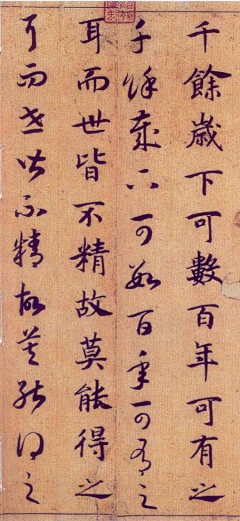 千餘歲下可數百年可有之
千餘歲下可數百年可有之
耳而世皆不精故莫能得之
耳而世皆不精故莫能得之